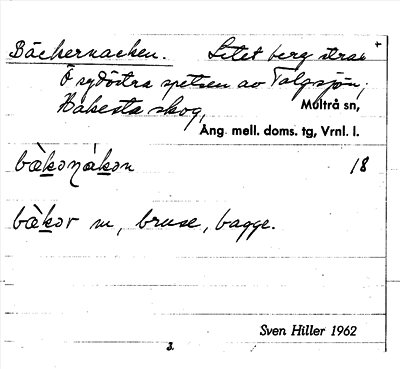 Bäckernacken. Litet berg strax
Ö sydöstra spetsen av Talpsjön,
Hakesta skog, Multrå sn,
Ång. mell. doms. tg, Vrnl. l.
bὲkoṇàkon 18
bὲkor m, bruse, bagge.
Sven Hiller 1962
3.